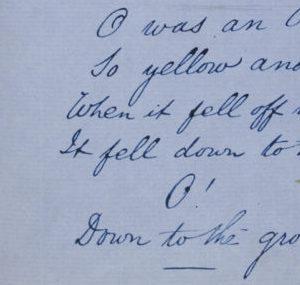 O was an
So yellow and
When it fell off
It fell down to
O!
Down to the gro